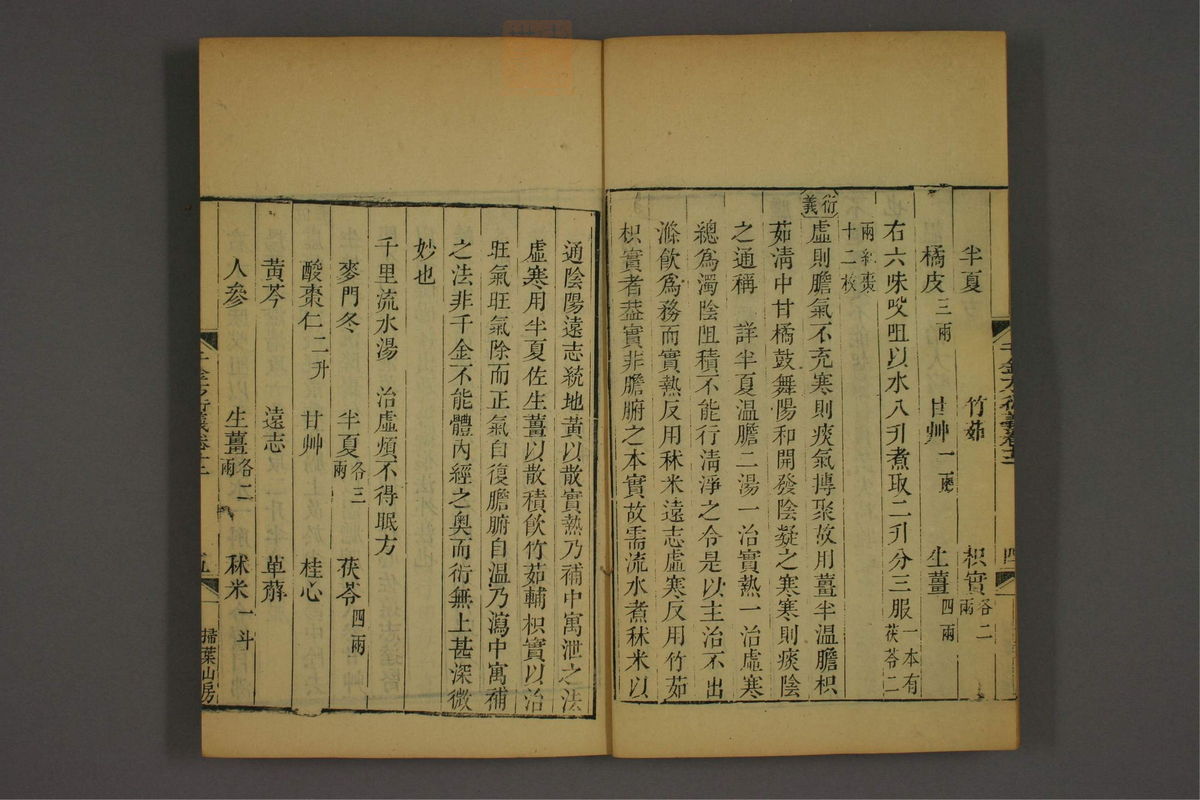 半夏 竹茹 枳實各二兩
橘皮三兩 甘艸一兩 生薑四兩
右六味㕮咀以水八升煮取二升分三服一本有茯苓二
兩紅棗十二枚
衍義虛則膽氣不充寒則痰氣摶聚故用薑半溫膽枳
茹清中甘橘鼓舞陽和開發陰凝之寒寒則痰陰
之通稱 詳半夏温膽二湯一治實熱一治虛寒
總爲濁陰阻積不能行清淨之令是以主治不出
滌飲爲務而實熱反用秫米遠志虛寒反用竹茹
枳實者葢實非膽腑之本實故需流水煮秫米以
四
通陰陽遠志統地黃以散實熱乃補中寓泄之法
虛寒用半夏佐生薑以散積飲竹茹輔枳實以治
旺氣旺氣除而正氣自復膽腑自温乃瀉中寓補
之法非千金不能體內經之奧而衍無上甚深微
妙也
千里流水湯 治虛煩不得眠方
麥門冬 半夏各三兩 茯苓四兩
酸棗仁二升 甘艸 桂心
黃芩 遠志 萆薢
人參 生薑各二兩 秫米一斗
五
掃葉山房